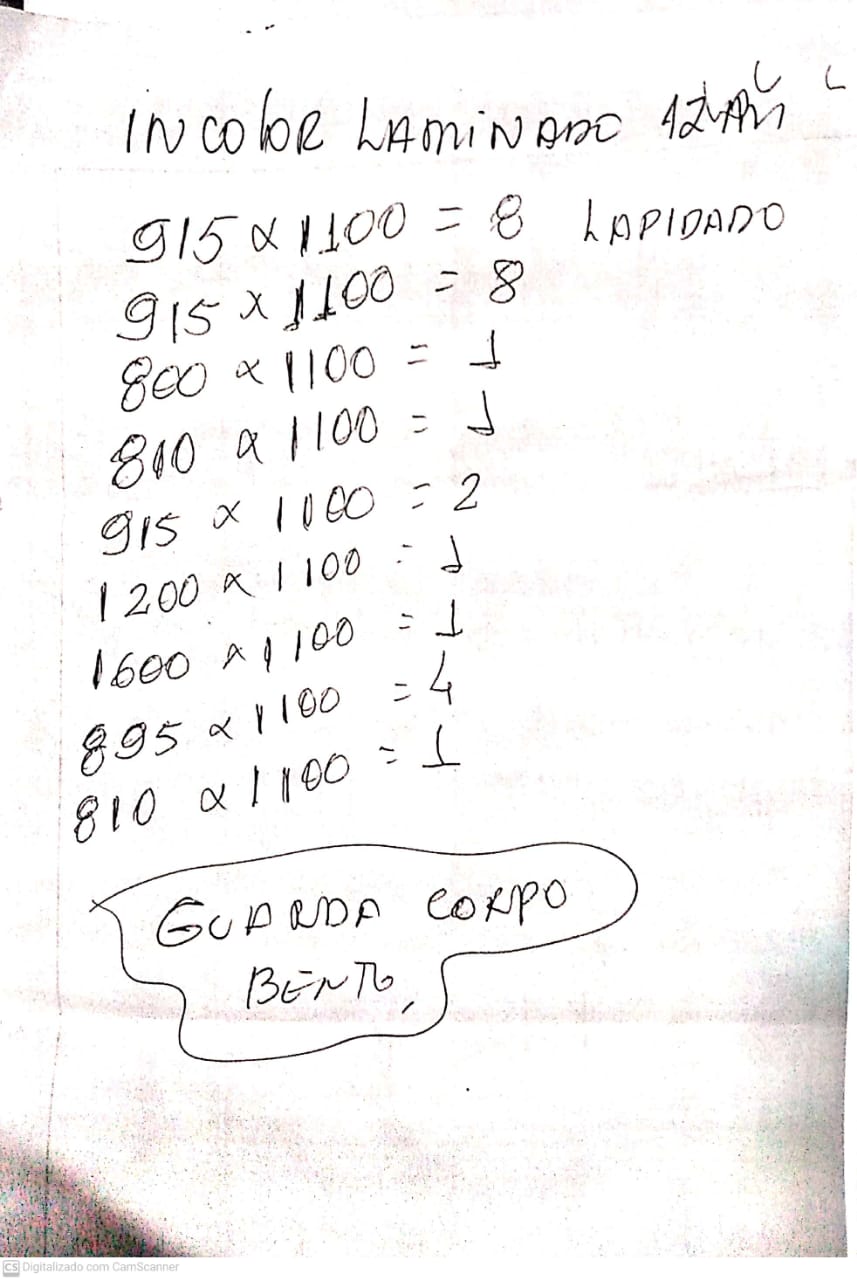 INCOLOR LAMINADO 12MM
915 x 1100 = 8 LAPIDADO
915 x 1100 = 8
800 x 1100 = 1
810 x 1100 = 1
915 x 1100 = 2
1200 x 1100 = 1
1600 x 1100 = 1
895 x 1100 = 4
810 x 1100 = 1
GUARDA CORPO
BENTO,
CS Digitalizado com CamScanner